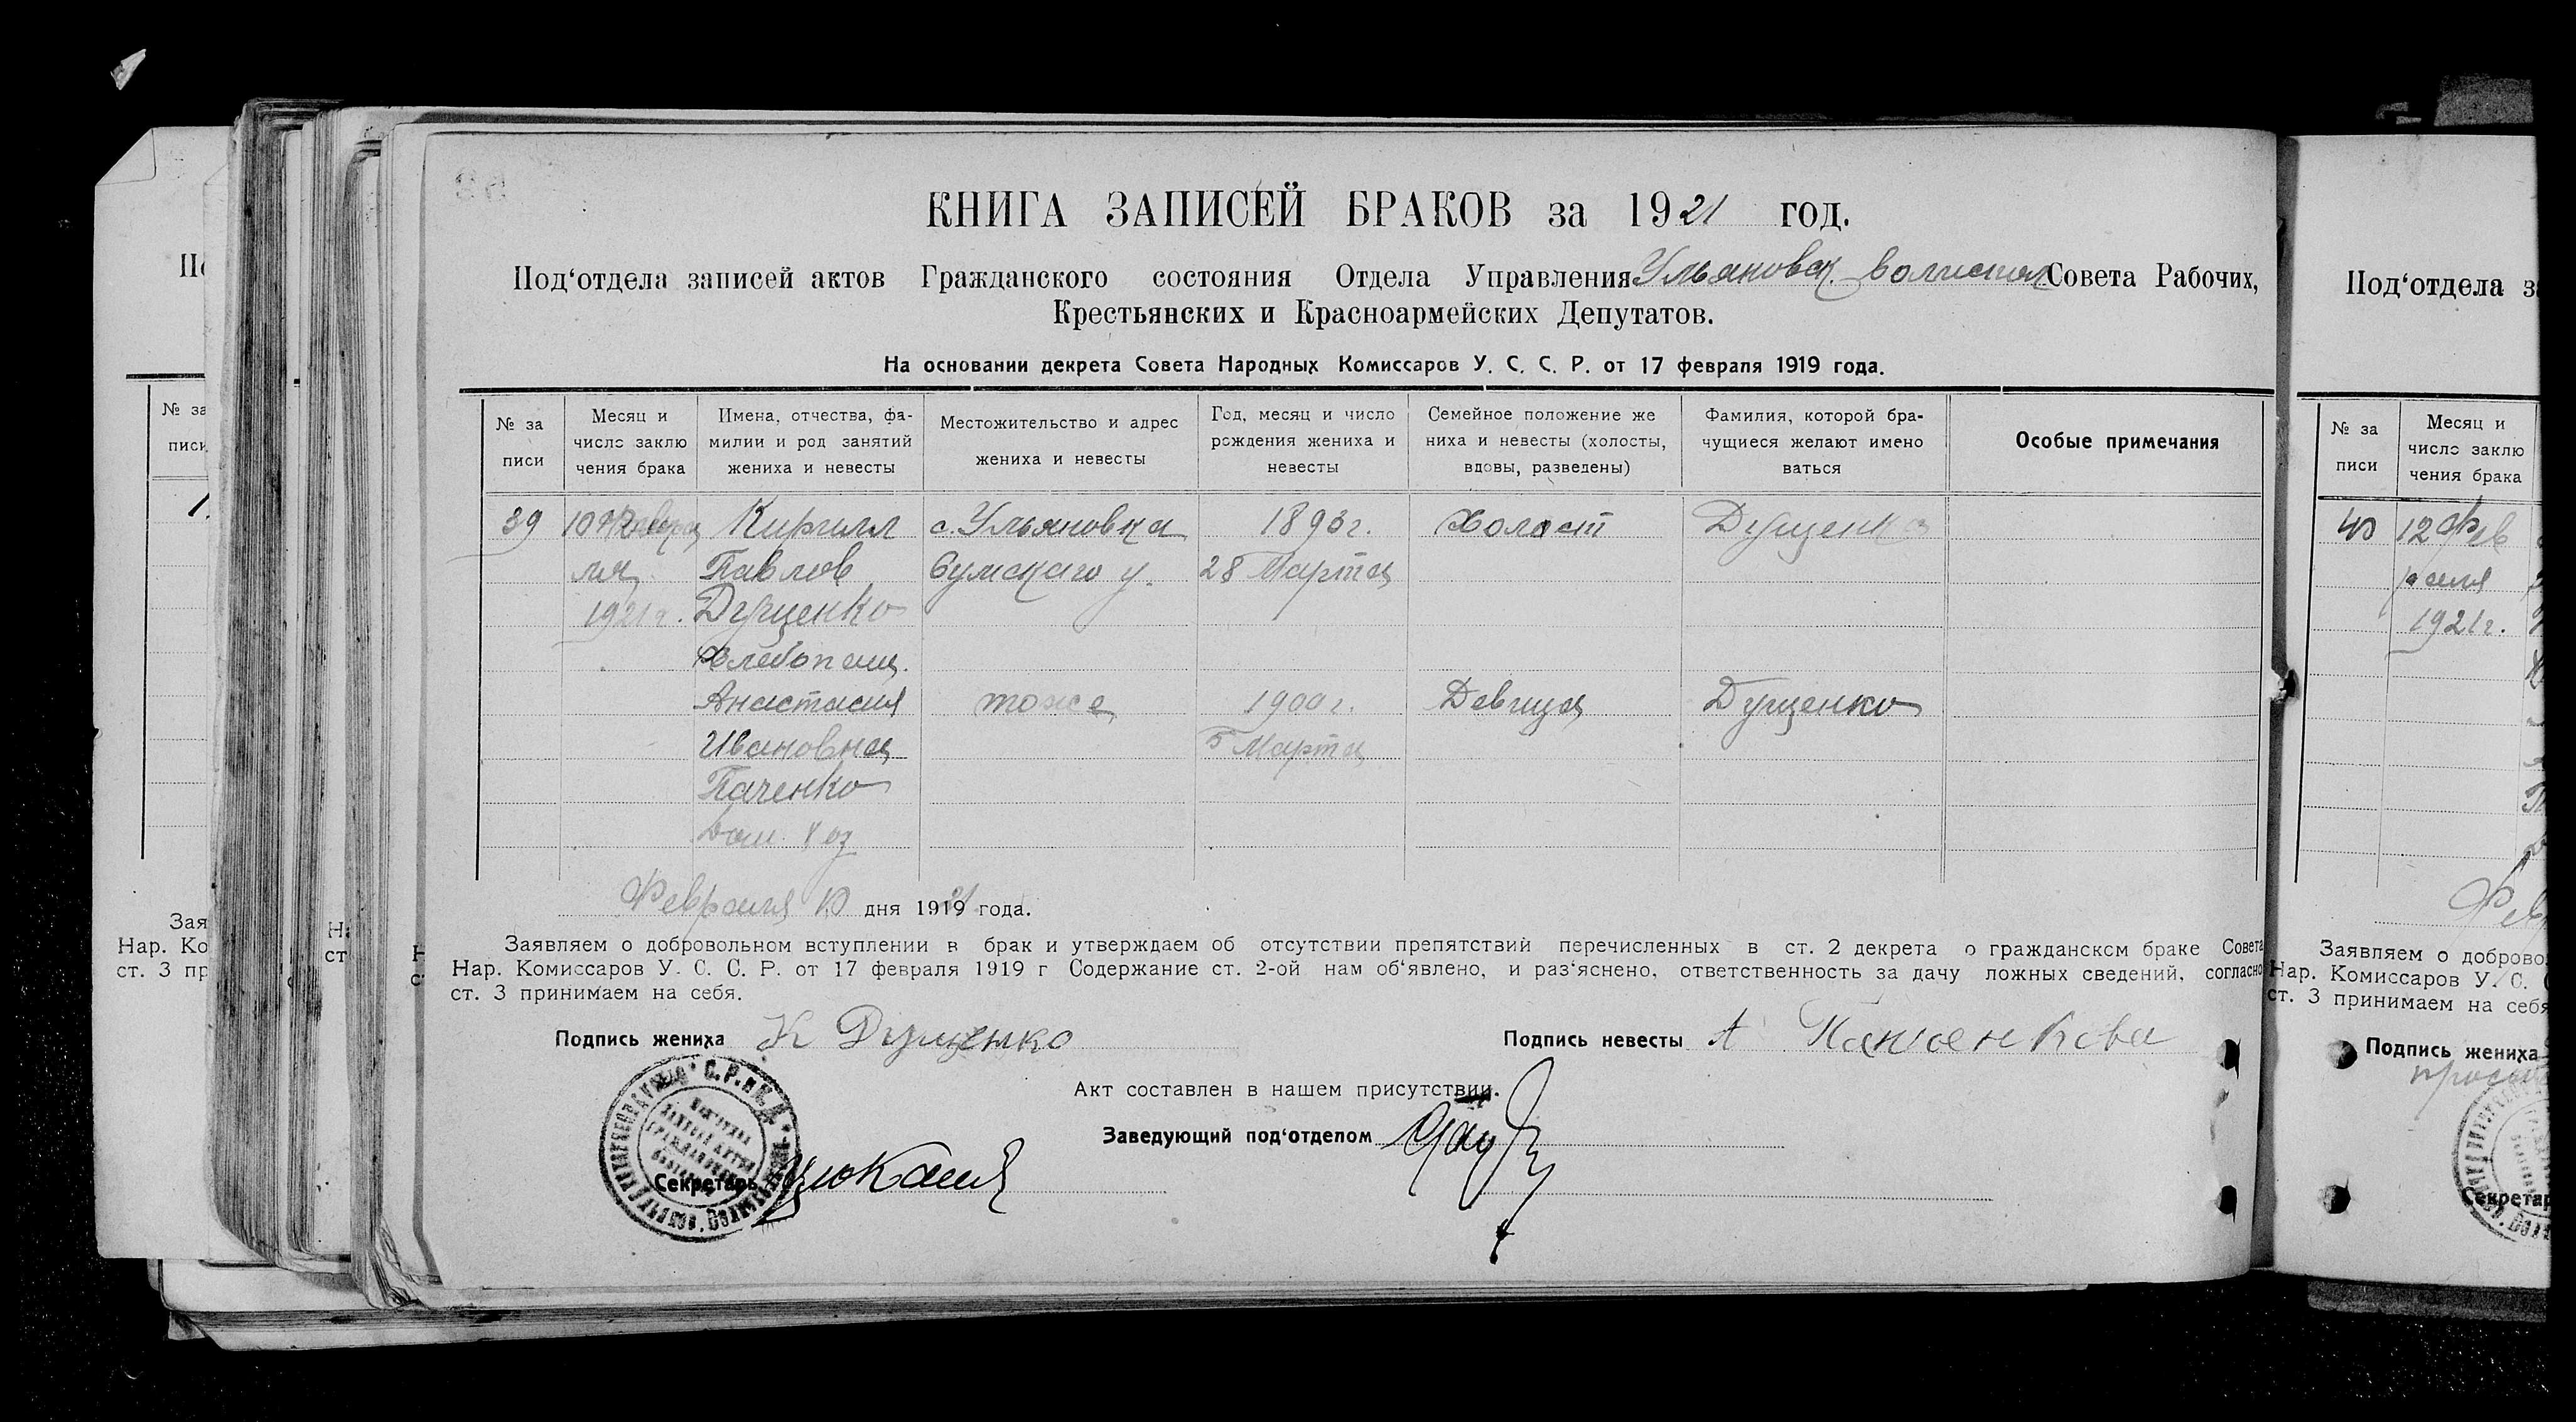 КНИГА ЗАПИСЕЙ БРАКОВ за 1921 год.
Под‘отдела записей актов Гражданского состояния Отдела Управления Ульяновск. Совета Рабочих,
Крестьянских и Красноармейских Депутатов.
На основании декрета Совета Народных Комиссаров У. С. С. Р. от 17 февраля 1919 года.
№ за писи
Месяц и число заклю чения брака
Имена, отчества, фа- милии и род занятий жениха и невесты
Местожительство и адрес жениха и невесты
Год, месяц и число рождения жениха и невесты
Семейное положение же ниха и невесты (холосты, вдовы, разведены)
Фамилия, которой бра- чущиеся желают имено ваться
Особые примечания
39 10 Кирилл с. Ульяновка 1893 г. Холост Дущенко
Павлов Сумскаго у. 28 Марта
1921 г. Дущенко
Хлебопаш.
Анастасия тоже 1900 г. Девица Дущенко
Ивановна 5 Марта
Паченко
Дом. хоз
Февраля 10 дня 1921 года.
Заявляем о добровольном вступлении в брак и утверждаем об отсутствии препятствий перечисленных в ст. 2 декрета о гражданском браке Совета
Нар. Комиссаров У. С. С. Р. от 17 февраля 1919 г Содержание ст. 2-ой нам об‘явлено, и раз‘яснено, ответственность за дачу ложных сведений, согласно
ст. 3 принимаем на себя.
Подпись жениха К Дущенко Подпись невесты А
Акт составлен в нашем присутствии.
Заведующий под‘отделом
Секретарь
Под‘отдела
№ за писи
Месяц и число заклю чения брака
40 12 Фев
раля
1921 г.
Заявляем о
Нар. Комиссаров У. С.
ст. 3 принимаем на себя
Подпись жениха
Секретар
№ за
писи
Зая
Нар. Ко
ст. 3 пр